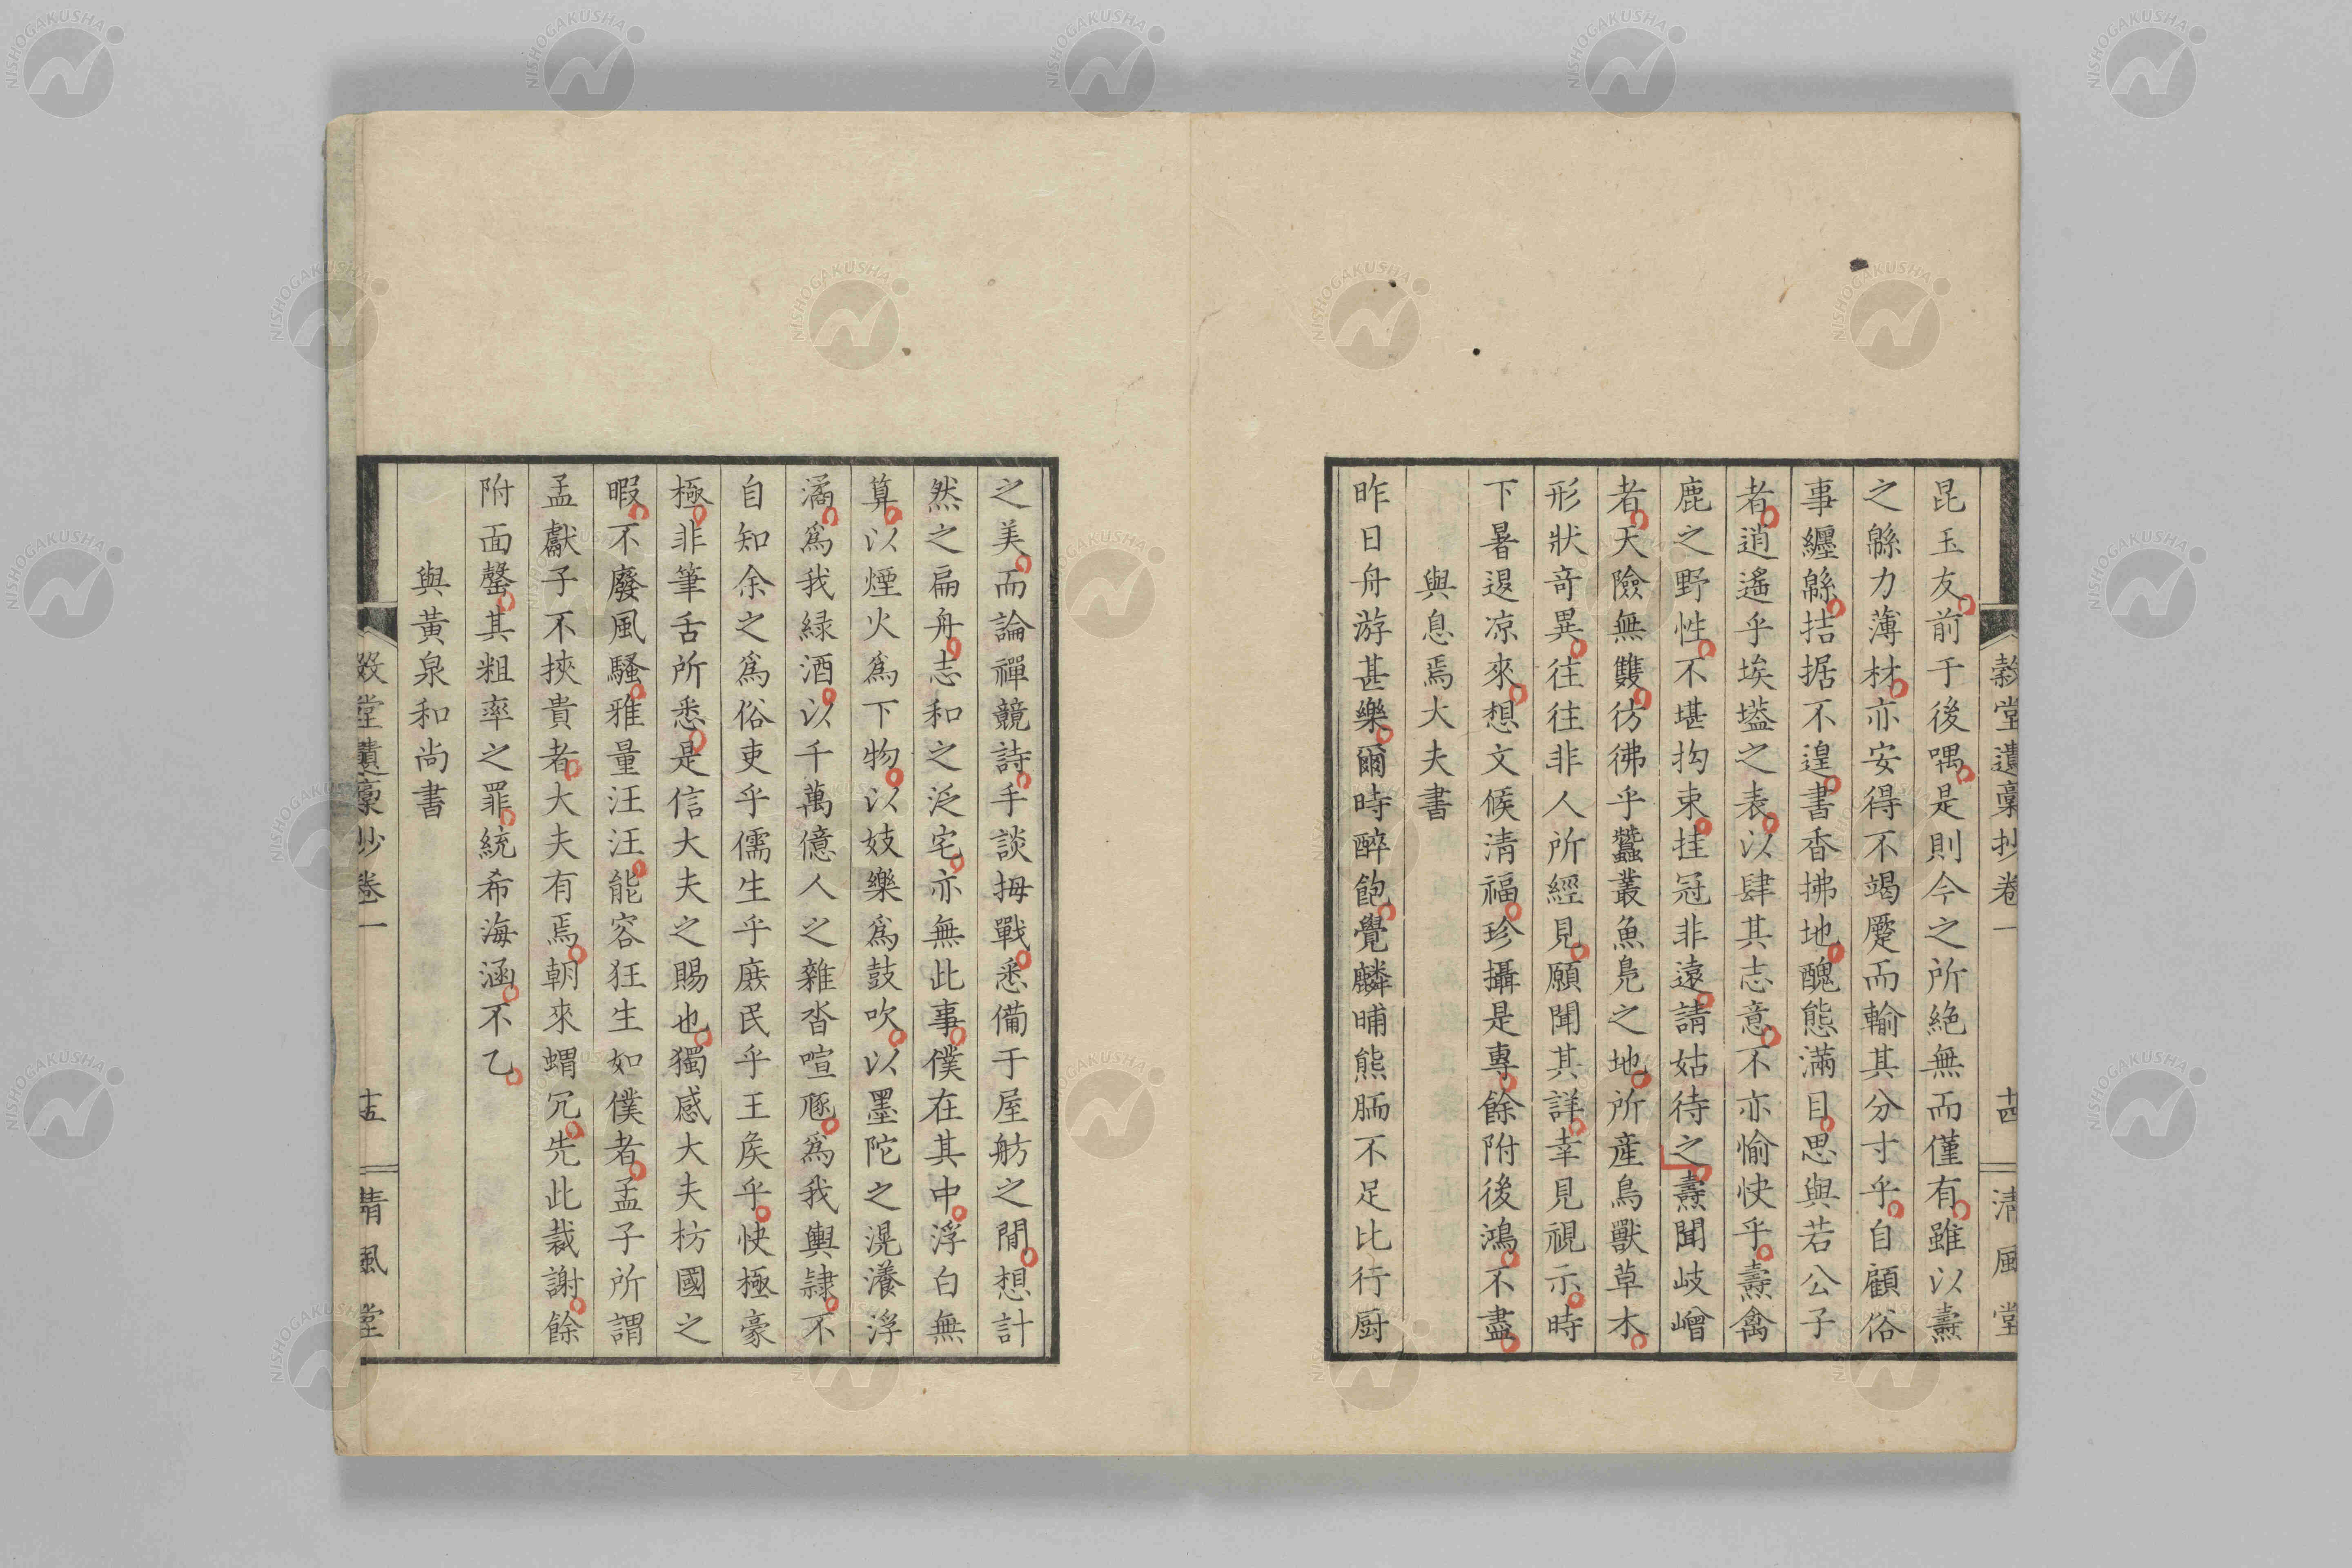 穀堂遺稾抄卷一 十四 清風堂
昆玉友前于後喁是則今之所絶無而僅有雖以燾
之緜力薄材亦安得不竭蹷而輸其分寸乎自顧俗
事纒緜拮据不遑書香拂地醜態滿目思與若公子
者逍遙乎埃壒之表以肆其志意不亦愉快乎燾禽
鹿之野性不堪拘束挂冠非遠請姑待之燾聞岐嶒
者天險無雙彷彿乎蠶叢魚鳧之地所產鳥獸草木
形狀奇異往往非人所經見願聞其詳幸見視示時
下暑退凉來想文候清福珍攝是專餘附後鴻不盡
與息焉大夫書
昨日舟游甚樂爾時醉飽覺麟脯熊腼不足比行厨
之美而論禪競詩手談拇戰悉備于屋舫之間想計
然之扁舟志和之泛宅亦無此事僕在其中浮白無
算以煙火爲下物以妓樂爲鼓吹以墨陀之滉瀁浮
潏爲我緑酒以千萬億人之雜沓喧豗爲我輿隷不
自知余之爲俗吏乎儒生乎庶民乎王矦乎快極豪
極非筆舌所悉是信大夫之賜也獨感大夫枋國之
暇不廢風騷雅量汪汪能容狂生如僕者孟子所謂
孟獻子不挾貴者大夫有焉朝來蝟冗先此裁謝餘
附面罄其粗率之罪統希海涵不乙
與黃泉和尚書
穀堂遺稾抄卷一 十五 清風堂
NISHOGAKUSHA